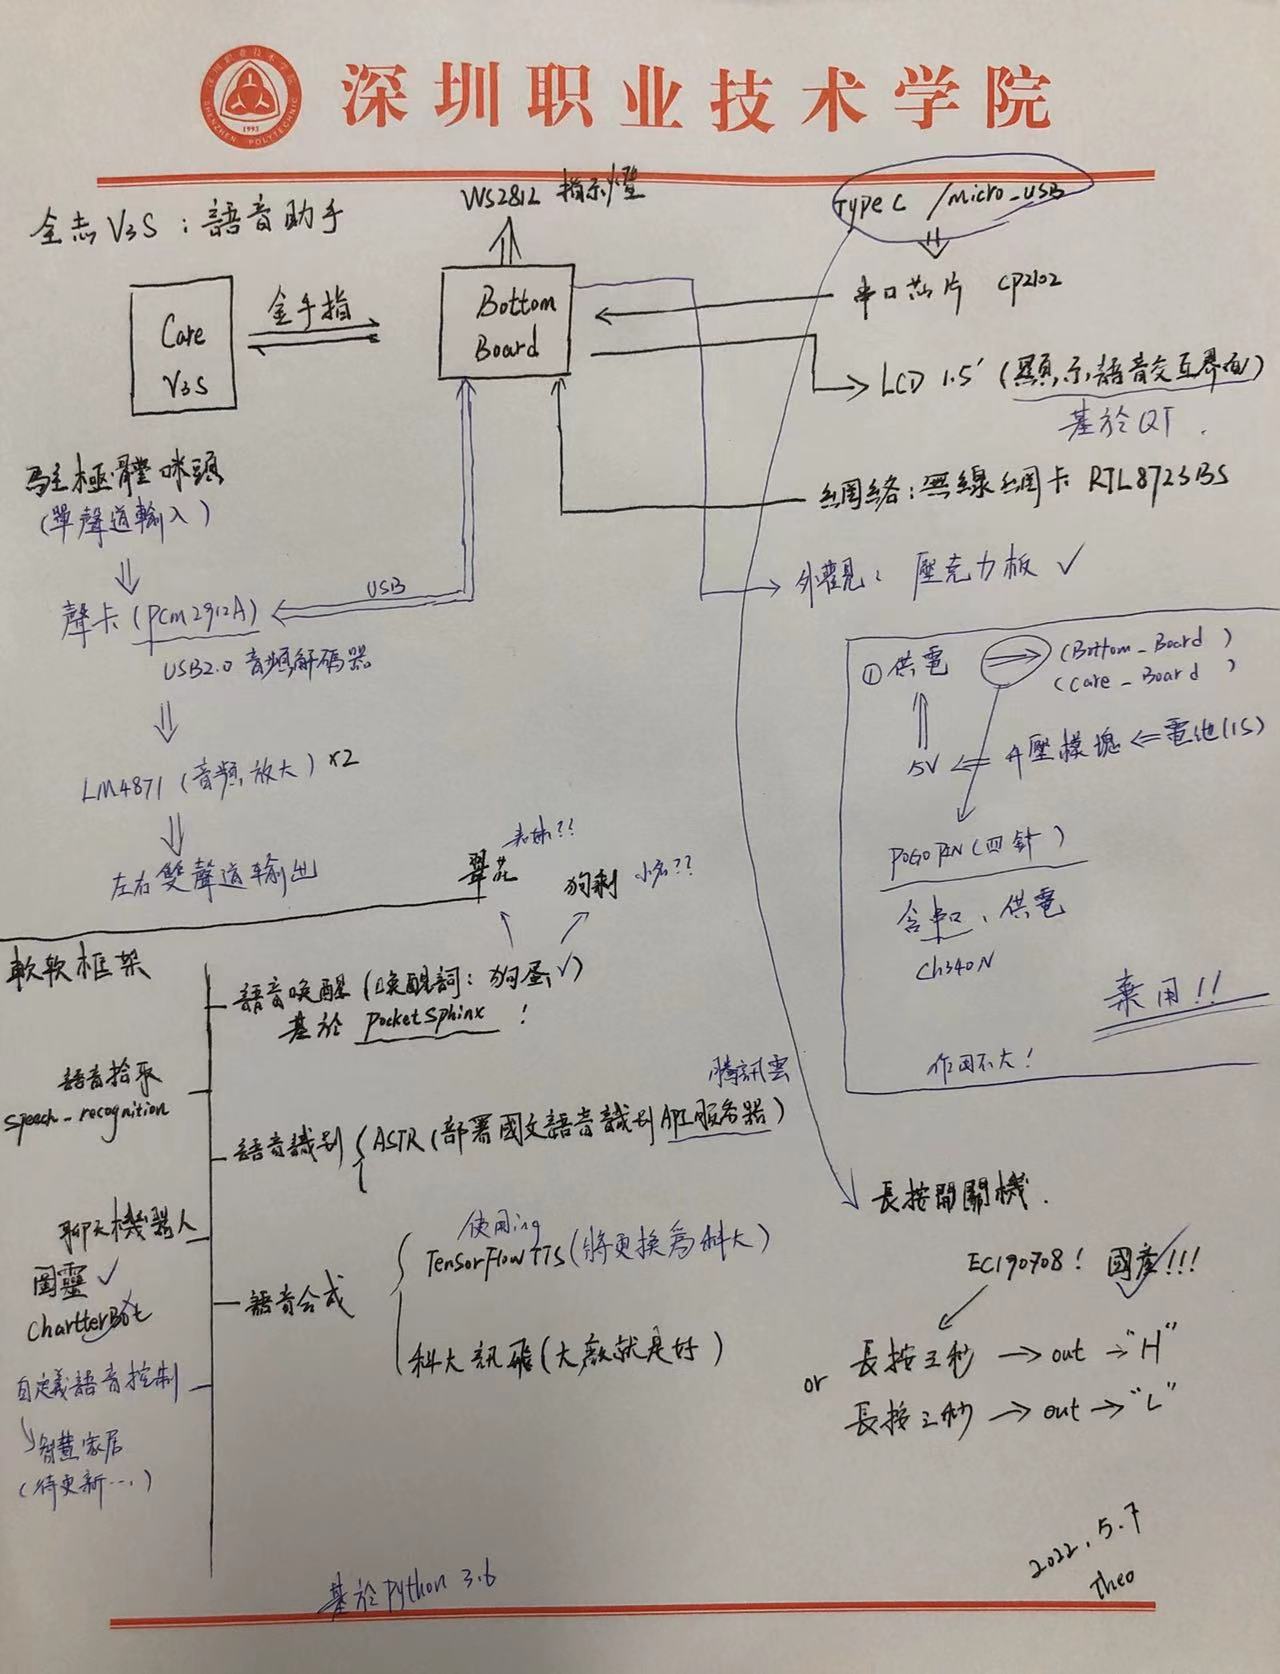 深圳职业技术学院
深圳职业技术学院
SHENZHEN POLYTECHNIC
1993
全志V3S：語音助手
WS2812 指示燈
Type C /Micro_USB
串口芯片 CP2102
Care
V3S
金手指
Bottom
Board
LCD 1.5' (顯示語音交互界面)
基於QT.
駐極體咪頭
(單聲道輸入)
網絡:無線網卡 RTL8723BS
外觀: 壓克力板 ✓
USB
聲卡(PCM2912A)
USB2.0 音頻解碼器
LM4871 (音頻放大) x2
左右雙聲道輸出
①供電
(Bottom_Board)
(Care_Board)
5V
升壓模塊
電池(1S)
POGO PIN(四針)
含串口、供電
Ch340N
棄用!!
作用不大!
翠花
狗剩
小名??
軟软框架
語音喚醒(喚醒詞: 狗蛋✓)
基於 PocketSphinx !
語音拾取
Speech_recognition
騰訊雲
語音識别
ASTR(部署國文語音識别API服务器)
聊天機器人
圖靈 ✓
ChartterBot
語音合成
使用ing
TensorFlowTTS(將更换為科大)
科大訊飛(大廠就是好)
自定義語音控制
智慧家居
(待更新...)
長按開關機.
EC190708! 國産!!!
長按三秒 → out → "H"
or
長按三秒 → out → "L"
基於Python 3.6
2022.5.7
Theo